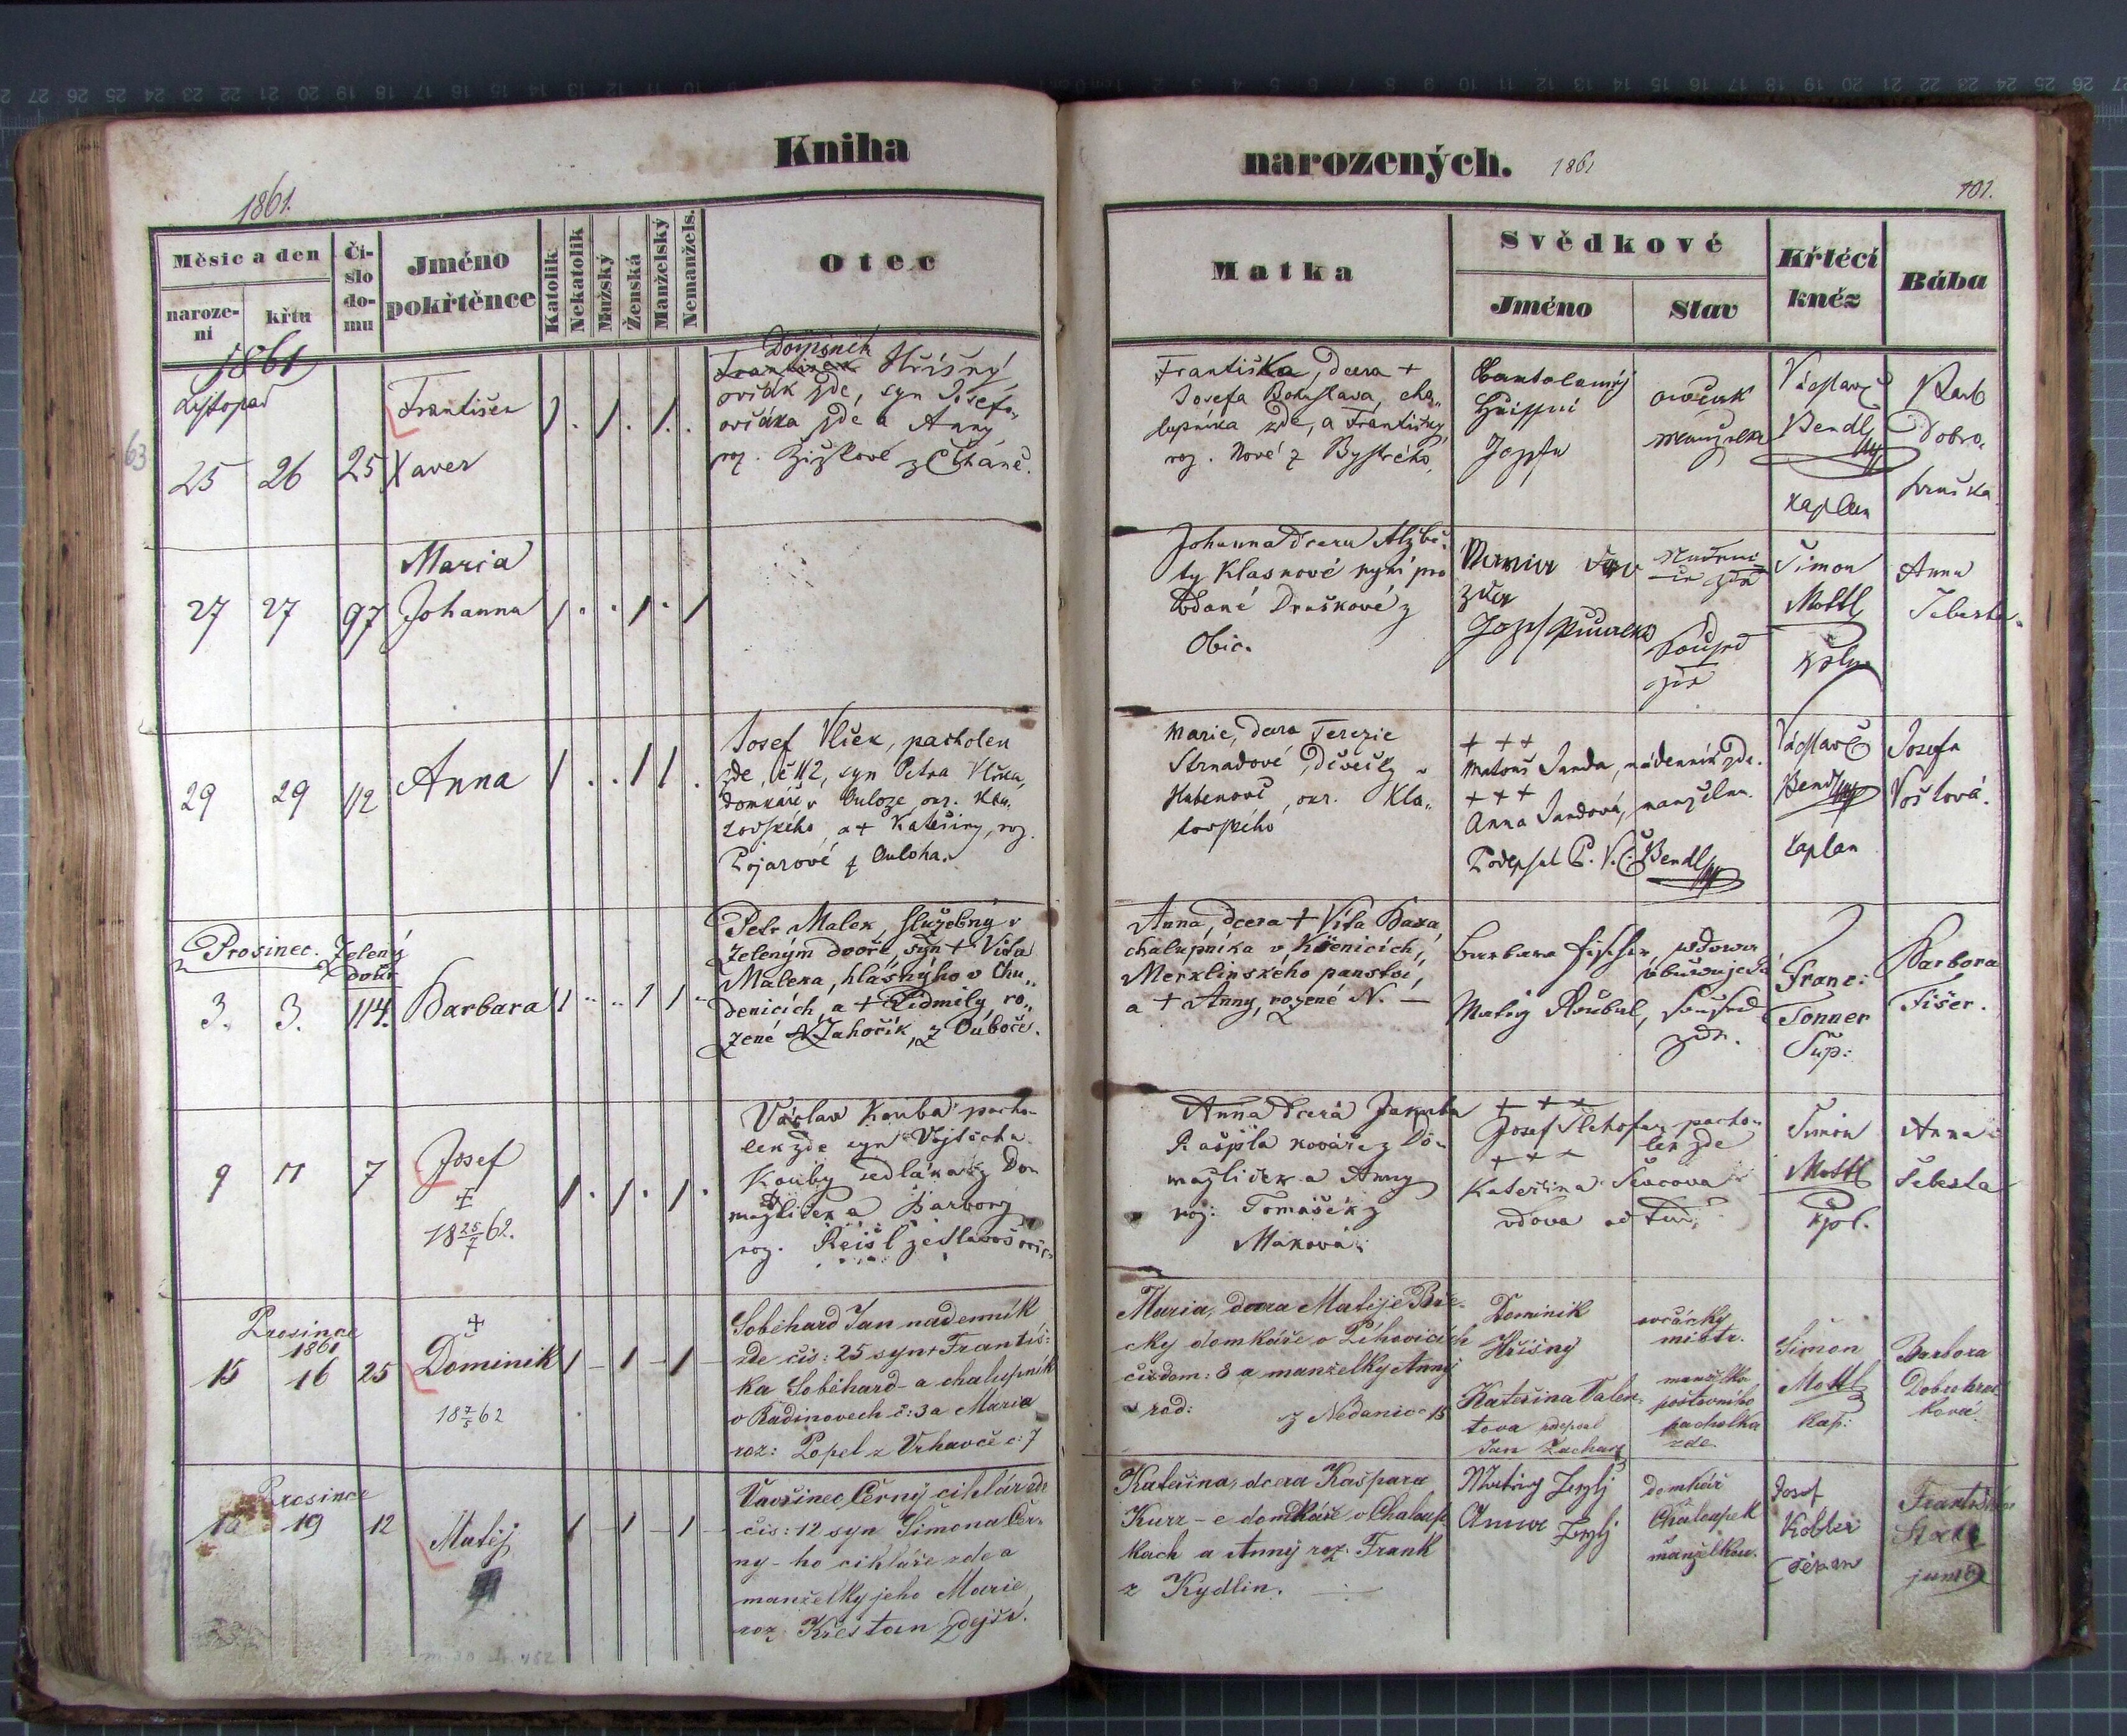 Kniha
narozených. 1861
1861.
101.
Měsíc a den
naroze-
ní
křtu
Čí-
slo
do-
mu
Jméno
pokřtěnce
Katolík
Nekatolík
Mužský
Ženská
Manželský
Nemanžels.
Otec
Matka
Svědkové
Jméno
Stav
Křtící
kněz
Bába
1861
Listopad
63
25 26 25
František
Xaver
Dominik
František Hříšný
ovčák zde, syn Josefa,
ovčáka zde a Anny
roz. Žižkové z Číhaně.
Františka, dcera +
Josefa Bohuslava, cha„
lupníka zde, a Františky,
roz. Nové z Bystrého,
Josefa
ovčák
manželka
Václav
Bendl
kaplan
Barb
Dobro„
hruška
27 27 97
Maria
Johanna
Johanna dcera Alžbě„
ty Klasnové nyní pro
vdané Draškové z
Obic.
zde
Josef
soused
zde
Šimon
Mottl
kpln
Anna
Šebesta
29 29 112
Anna
Josef Vlček, pacholek
zde, č 112, syn Petra Vlčka,
domkáře v Ouloze, okr. Kla„
tovského, a + Kateřiny, roz.
Pojarové z Ouloha.
Marie, dcera Terezie
Strnadové, děvečky v
Habenově, okr. Kla„
tovského
+ ++
Matouš Janda, nádenník zde.
+++
Anna Jandová, manželka.
Podepsal P. V. Č. Bendl
Václav
Bendl
kaplan
Josefa
Voštová.
Prosinec. Zelený
dvůr
3. 3. 114.
Barbara
Petr Malek, služebný v
Zeleným dvoře, syn + Víta
Maleka, hlásnýho v Chu„
denicích, a + Lidmily ro„
zené Zahořík, z Ouboče.
Anna, dcera + Víta Baxa,
chalupníka v Křenicích,
Merklinského panství,
a + Anny, rozené N. —
Barbara Fischer, vdova
Matěj Roubal, soused
zde.
Franc:
Tonner
Sup:
Barbora
Fišer.
9 11 7
Josef
+
18 25/7 62.
Václav Kouba pacho„
lek zde syn Vojtěcha
Kouby sedláka z Do„
mažliček a Barbory
roz. Reisl
Anna dcera Jakuba
Rašpla kováře z Do„
mažliček a Anny
roz: Tomášek z
Makova.
+++
Josef Slehofer pacho„
lek zde
+++
Kateřina Ševcova
vdova
Šimon
Mottl
kpl.
Anna
Šebesta
Prosince
1861
15 16 25
+
Dominik
18 7/5 62
Sobehard Jan nadenník
zde čís: 25 syn + Františ„
ka Sobehard - a chalupník
v Radinovech č: 3 a Maria
roz: Popel z Vrhavče č: 7
Maria, dcera Matěje Bře„
cky domkáře v Líhovicích
čísdom: 8 a manželky Anny
rod: z Nedanic 15
Dominik
Hříšný
ovčácky
mistr.
Kateřina Valen„
tova podepsal
Jan Zachar
manželka
poštovního
pacholka
zde
Šimon
Mottl
Kap:
Barbora
Dobrohruš
ková
Prosince
18 19 12
Matěj
Vavřinec Černý cihlář zde
čís: 12 syn Šimona Čer„
ny - ho cihláře zde a
manželky jeho Marie
roz. Křestan zdejší.
Kateřina, dcera Kašpara
Kurz - e domkáře v Chalup„
kach a Anny roz. Frank
z Kydlin.
Matěj
Anna
domkář
Chalupek
manželkou.
Josef
Kobler
Děkan